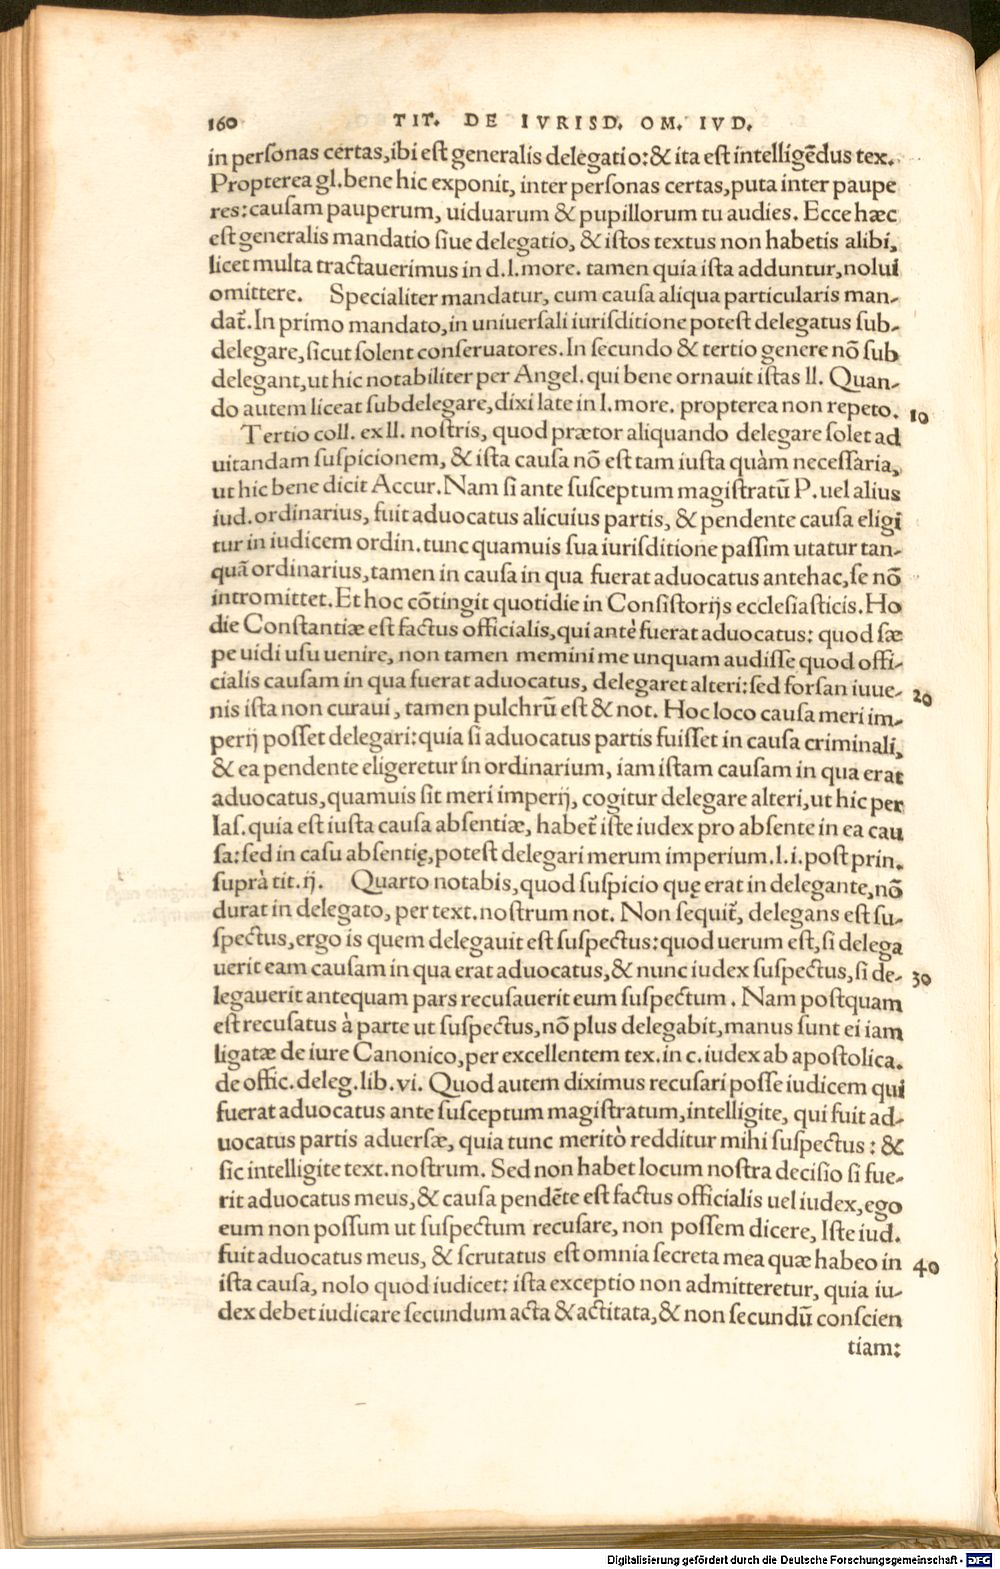 160 TIT. DE IVRISD. OM. IVD.
in personas certas, ibi est generalis delegatio: & ita est intelligēdus tex.
Propterea gl. bene hic exponit, inter personas certas, puta inter paupe
res: causam pauperum, uiduarum & pupillorum tu audies. Ecce hæc
est generalis mandatio siue delegatio, & istos textus non habetis alibi,
licet multa tractauerimus in d. l. more. tamen quia ista adduntur, nolui
omittere. Specialiter mandatur, cum causa aliqua particularis man-
dat᷑. In primo mandato, in uniuersali iurisditione potest delegatus sub-
delegare, sicut solent conseruatores. In secundo & tertio genere nō sub
delegant, ut hic notabiliter per Angel. qui bene ornauit istas ll. Quan-
do autem liceat subdelegare, dixi late in l. more. propterea non repeto. 10
Tertio coll. ex ll. nostris, quod prætor aliquando delegare solet ad
uitandam suspicionem, & ista causa nō est tam iusta quàm necessaria,
ut hic bene dicit Accur. Nam si ante susceptum magistratū P. uel alius
iud. ordinarius, fuit aduocatus alicuius partis, & pendente causa eligi
tur in iudicem ordin. tunc quamuis sua iurisditione passim utatur tan-
quā ordinarius, tamen in causa in qua fuerat aduocatus antehac, se nō
intromittet. Et hoc cōtingit quotidie in Consistorijs ecclesiasticis. Ho
die Constantiæ est factus officialis, qui antè fuerat aduocatus: quod sæ
pe uidi usu uenire, non tamen memini me unquam audisse quod offi-
cialis causam in qua fuerat aduocatus, delegaret alteri: sed forsan iuue- 20
nis ista non curaui, tamen pulchrū est & not. Hoc loco causa meri im-
perij posset delegari: quia si aduocatus partis fuisset in causa criminali,
& ea pendente eligeretur in ordinarium, iam istam causam in qua erat
aduocatus, quamuis sit meri imperij, cogitur delegare alteri, ut hic per
Ias. quia est iusta causa absentiæ, habet᷑ iste iudex pro absente in ea cau
sa: sed in casu absentię, potest delegari merum imperium. l. i. post prin.
suprà tit. ij. Quarto notabis, quod suspicio quę erat in delegante, nō
durat in delegato, per text. nostrum not. Non sequit᷑, delegans est su-
spectus, ergo is quem delegauit est suspectus: quod uerum est, si delega
uerit eam causam in qua erat aduocatus, & nunc iudex suspectus, si de- 30
legauerit antequam pars recusauerit eum suspectum. Nam postquam
est recusatus à parte ut suspectus, nō plus delegabit, manus sunt ei iam
ligatæ de iure Canonico, per excellentem tex. in c. iudex ab apostolica.
de offic. deleg. lib. vi. Quod autem diximus recusari posse iudicem qui
fuerat aduocatus ante susceptum magistratum, intelligite, qui fuit ad-
uocatus partis aduersæ, quia tunc meritò redditur mihi suspectus: &
sic intelligite text. nostrum. Sed non habet locum nostra decisio si fue-
rit aduocatus meus, & causa pendēte est factus officialis uel iudex, ego
eum non possum ut suspectum recusare, non possem dicere, Iste iud.
fuit aduocatus meus, & scrutatus est omnia secreta mea quæ habeo in 40
ista causa, nolo quod iudicet: ista exceptio non admitteretur, quia iu-
dex debet iudicare secundum acta & actitata, & non secundū conscien
tiam:
Digitalisierung gefördert durch die Deutsche Forschungsgemeinschaft - DFG